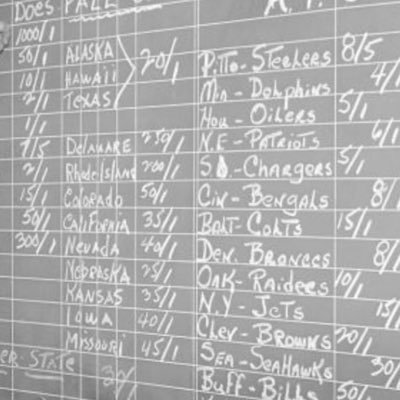 Does FALL
1000/1
50/1 ALASKA
10/1 HAWAII 20/1
2/1 TEXAS
1/1
7/5 DELAWARE 250/1
2/1 Rhode Island 200/1
15/1 COLORADO 50/1
50/1 CALIFORNIA 35/1
300/1 NEVADA 40/1
NEBRASKA 25/1
KANSAS 35/1
IOWA 40/1
MISSOURI 45/1
STATE
A.F.
PITTS- STEELERS 8/5
MIA- DOLPHINS 4/1
HOU- OILERS 5/1
N.E- PATRIOTS 6/1
S.D.-CHARGERS 5/1
CIN- BENGALS 8/1
BALT- COLTS 15/1
DEN. BRONCOS 8/1
OAK- RAIDERS 10/1
N.Y- JETS 15/1
CLEV- BROWNS 20/1
SEA- SEAHAWKS 30/1
BUFF- BILLS 50/1